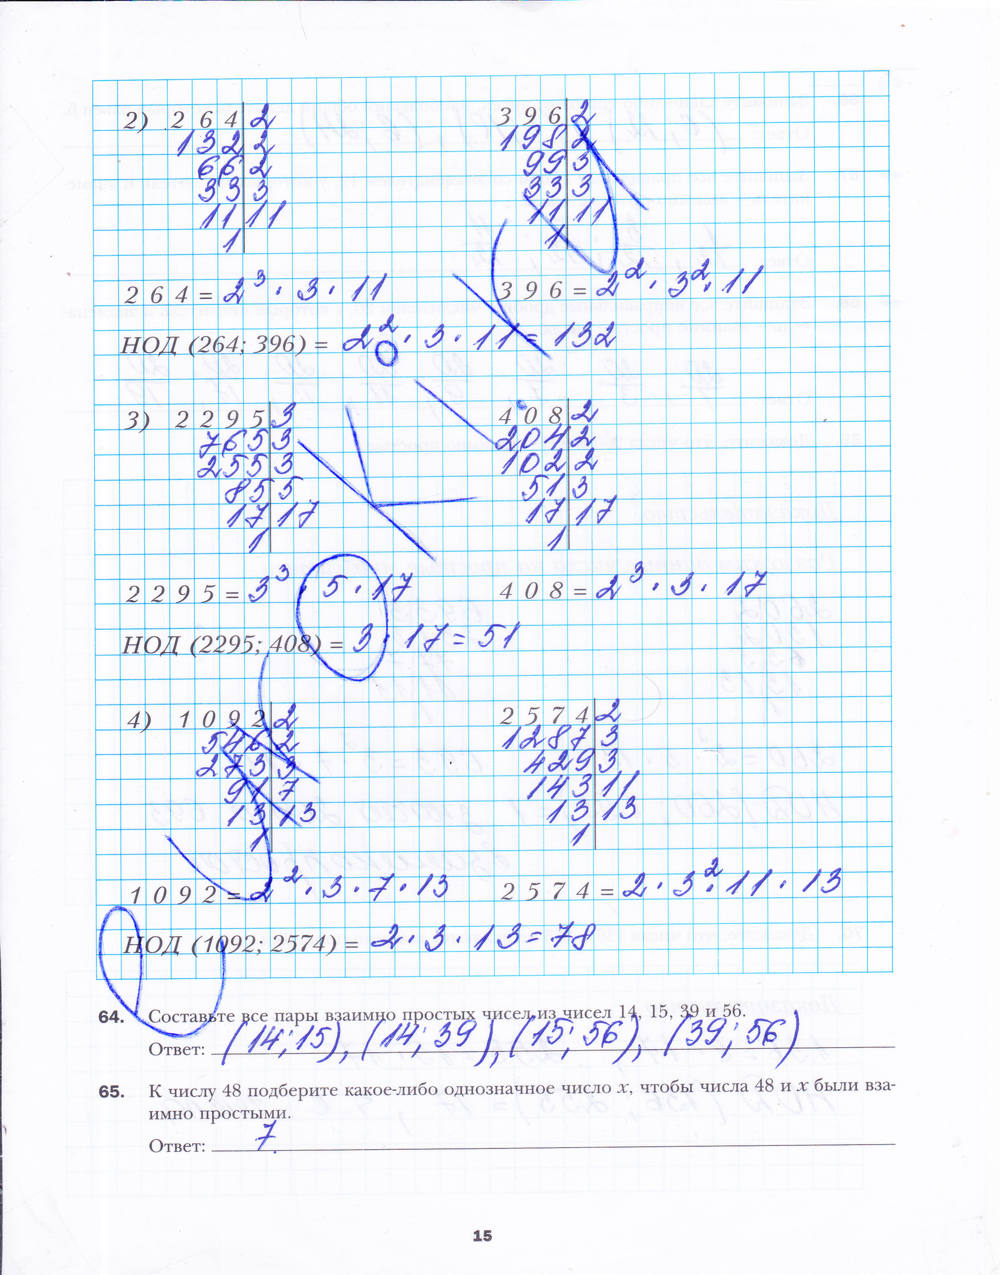 2) 264 2 396 2
132 2 198 2
66 2 99 3
33 3 33 3
11 11 11 11
1 1
264 = 2³ · 3 · 11 396 = 2² · 3² · 11
НОД (264; 396) = 2² · 3 · 11 = 132
3) 2295 3 408 2
765 3 204 2
255 3 102 2
85 5 51 3
17 17 17 17
1 1
2295 = 3³ · 5 · 17 408 = 2³ · 3 · 17
НОД (2295; 408) = 3 · 17 = 51
4) 1092 2 2574 2
546 2 1287 3
273 3 429 3
91 7 143 11
13 13 13 13
1 1
1092 = 2² · 3 · 7 · 13 2574 = 2 · 3² · 11 · 13
НОД (1092; 2574) = 2 · 3 · 13 = 78
64. Составьте все пары взаимно простых чисел из чисел 14, 15, 39 и 56.
Ответ: (14; 15), (14; 39), (15; 56), (39; 56)
65. К числу 48 подберите какое-либо однозначное число x, чтобы числа 48 и x были вза-
имно простыми.
Ответ: 7.
15